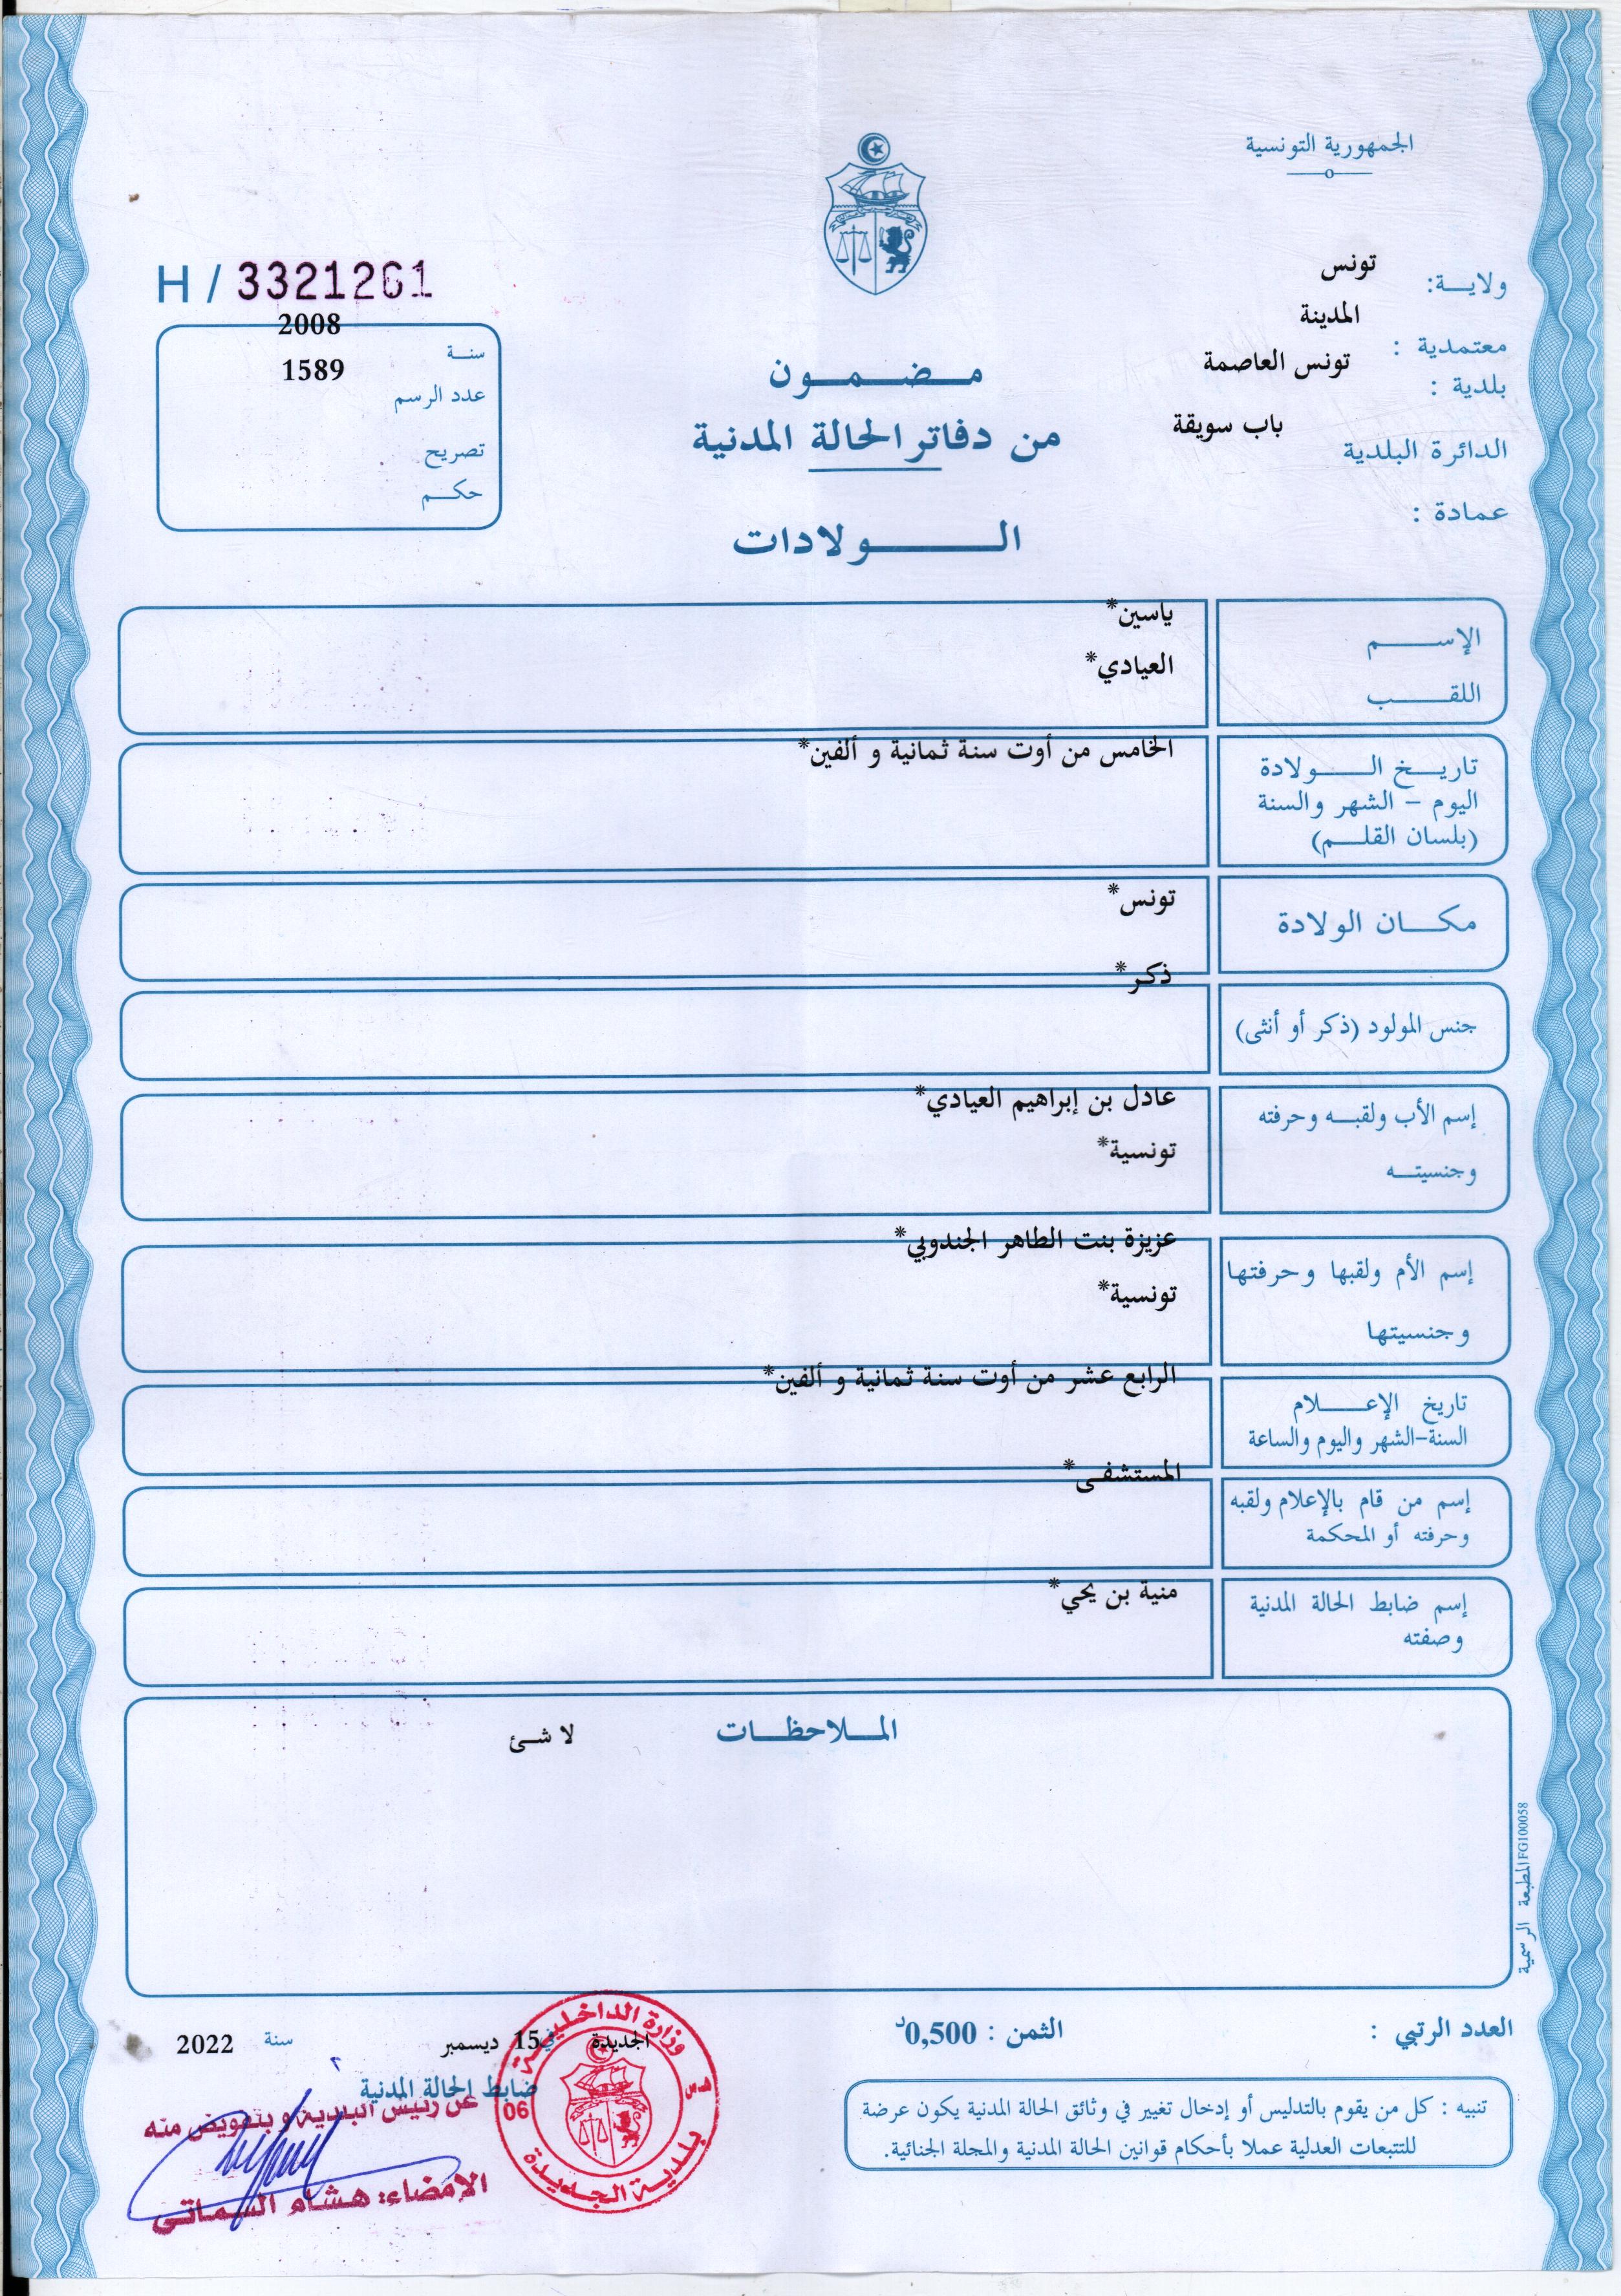 الجمهورية التونسية
ولايـــة: تونس
معتمدية : المدينة
بلدية : تونس العاصمة
الدائرة البلدية باب سويقة
عمادة :
مـضـمـون
من دفاتر الحالة المدنية
الـــولادات
H / 3321261
سنـة 2008
عدد الرسم 1589
تصريح
حكـم
الإســـم ياسين*
اللقـــب العيادي*
تاريـخ الـــولادة الخامس من أوت سنة ثمانية و ألفين*
اليوم – الشهر والسنة
(بلسان القلـم)
مكـــان الولادة تونس*
جنس المولود (ذكر أو أنثى) ذكر*
إسم الأب ولقبـه وحرفته عادل بن إبراهيم العيادي*
وجنسيتـه تونسية*
إسم الأم ولقبها وحرفتها عزيزة بنت الطاهر الجندوبي*
وجنسيتها تونسية*
تاريخ الإعـــلام الرابع عشر من أوت سنة ثمانية و ألفين*
السنة-الشهر واليوم والساعة
إسم من قام بالإعلام ولقبه المستشفى*
وحرفته أو المحكمة
إسم ضابط الحالة المدنية منية بن يحي*
وصفته
المـلاحظـات لا شئ
المطبعة الرسمية FG100058
العدد الرتبي :
الثمن : 0,500د
الجديدة في 15 ديسمبر سنة 2022
ضابط الحالة المدنية
عن رئيس البلدية و بتفويض منه
الإمضاء: هشام السماتي
وزارة الداخلية
06
بلدية الجديدة
تنبيه : كل من يقوم بالتدليس أو إدخال تغيير في وثائق الحالة المدنية يكون عرضة
للتتبعات العدلية عملا بأحكام قوانين الحالة المدنية والمجلة الجنائية.